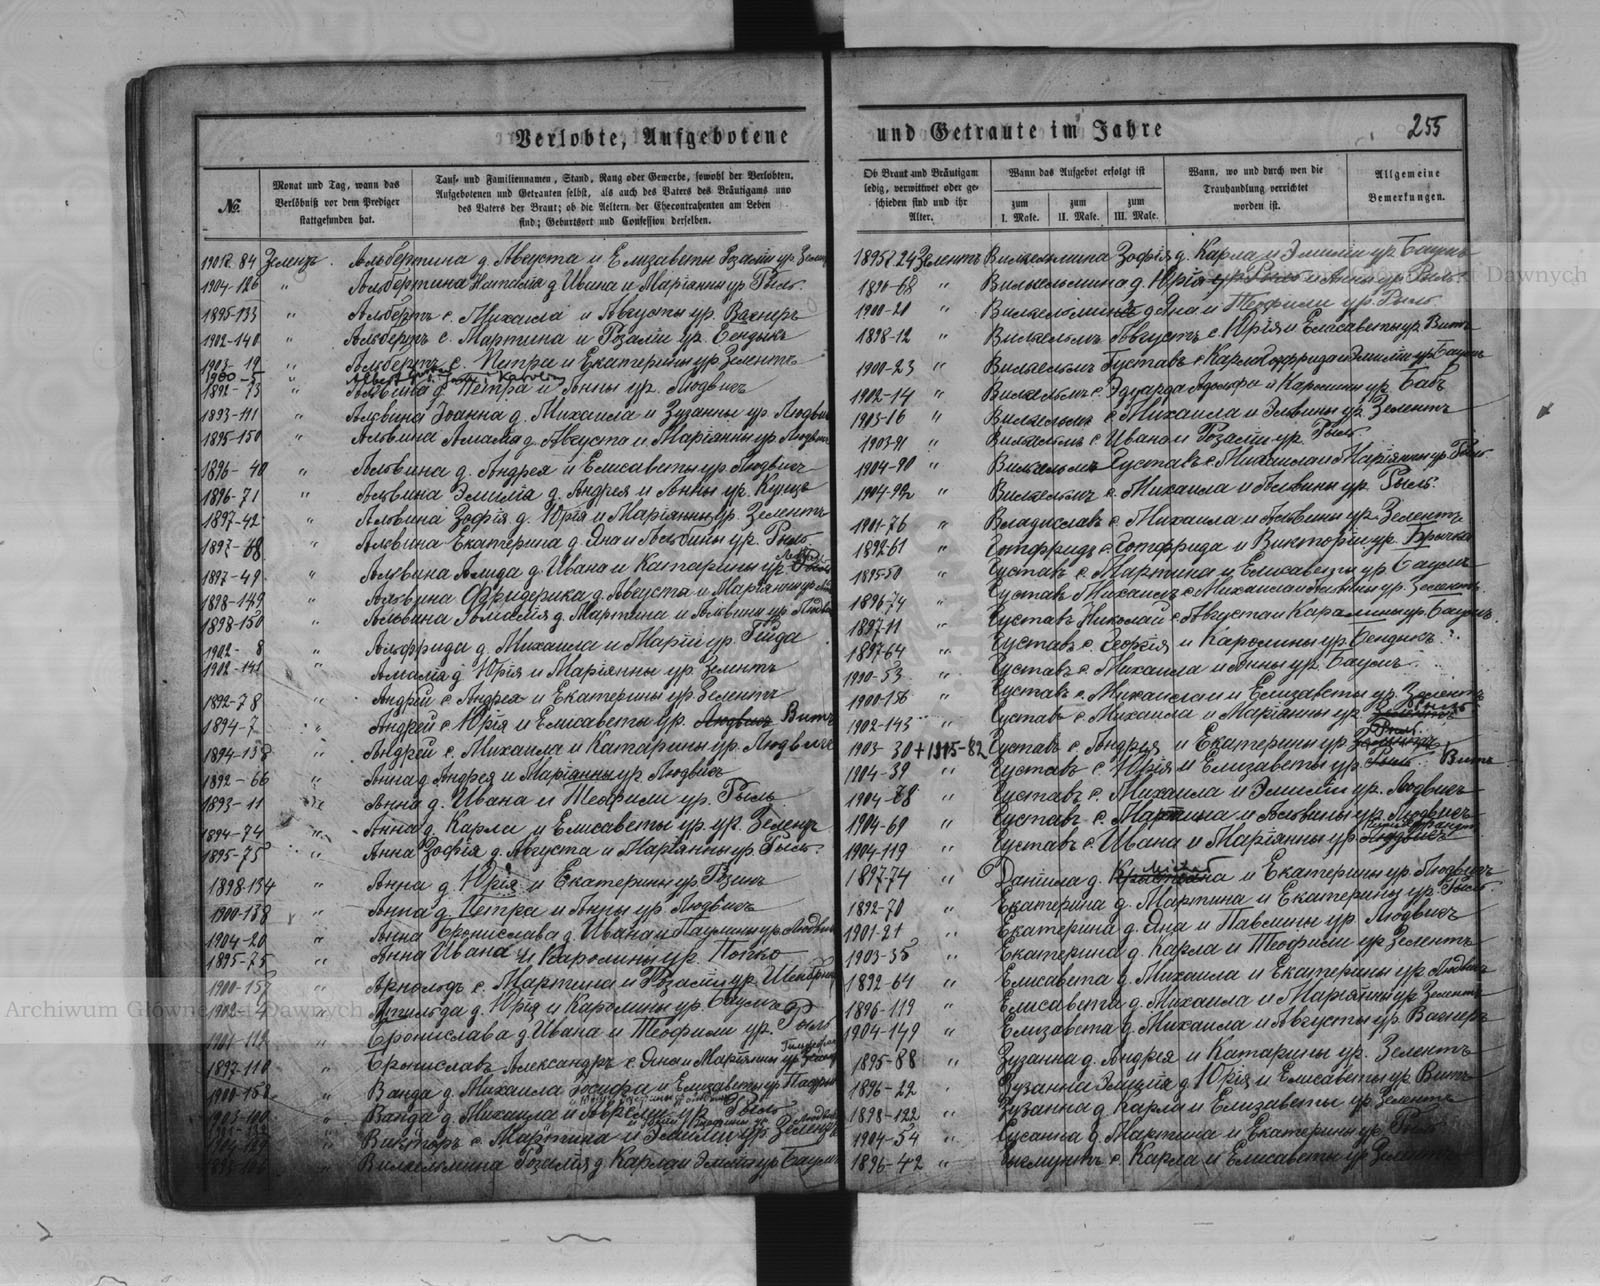 Verlobte, Aufgebotene
№.
Monat und Tag, wann das
Verlöbniß vor dem Prediger
stattgefunden hat.
Tauf- und Familiennamen, Stand, Rang oder Gewerbe, sowohl der Verlobten,
Aufgebotenen und Getrauten selbst, als auch des Vaters des Bräutigams und
des Vaters der Braut; ob die Aeltern der Ehecontrahenten am Leben
sind; Geburtsort und Confession derselben.
1904-126 " Альбертина Наталія д. Ивана и Маріанны ур. Рыль
1895-133 " Альбертъ с. Михаила и Августы ур. Вагнеръ
1902-140 " Альбертъ с. Мартина и Розаліи ур. Бендикъ
1903-19 " Альбертъ с. Петра и Екатерины ур. Зелентъ
1892-73 " Альвина д. Петра и Анны ур. Людвигъ
1893-111 " Альвина Іоанна д. Михаила и Зузанны ур.
1895-150 " Альвина Амалія д. Августа и Маріянны ур.
1896-40 " Альвина д. Андрея и Елисаветы ур. Людвигъ
1896-71 " Альвина Эмилія д. Андрея и Анны ур. Кунцъ
1897-42 " Альвина Зофія д. Юрія и Маріянны ур. Зелентъ
1897-68 " Альвина Екатерина д. Яна и Альвины ур. Рыль
1897-49 " Альвина д. Ивана и Катарины ур.
1898-149 " Альвина Фридерика д. Августа и Маріянны ур.
1898-150 Альвина д. Мартина и Альвины ур.
1902-8 " Альфрида д. Михаила и Маріи ур.
1902-141 " Амалія д. Юрія и Маріянны ур. Зелентъ
1892-78 " Андрей с. Андрея и Екатерины ур. Зелентъ
1894-7 " Андрей с. Юрія и Елисаветы ур. Людвигъ Витъ
1894-138 " Андрей с. Михаила и Катарины ур. Людвигъ
1892-66 " Анна д. Андрея и Маріянны ур. Людвигъ
1893-11 " Анна д. Ивана и Теофили ур. Рыль
1894-74 " Анна д. Карла и Елисаветы ур. ур. Зелентъ
1895-75 " Анна Зофія д. Августа и Маріянны ур. Рыль
1898-134 " Анна д. Юрія и Екатерины ур.
1900-138 " Анна д. Петра и Анны ур. Людвигъ
1904-20 " Анна Бронислава д. Ивана и Паулины ур.
1895-75 " Анна Ивана и Каролины ур. Попко
1900-157 " Арнольдъ с. Мартина и Розаліи ур.
1902-4 " д. Юрія и Каролины ур. Баумъ
1901-119 " Бронислава д. Ивана и Теофили ур. Рыль
1897-110 " Брониславъ Александръ с. Яна и Маріянны ур.
1900-158 " Ванда д. Михаила Іосифа и Елизаветы ур.
1903-100 " Ванда д. Михаила и ур. Рыль
Викторъ с. Мартина и Эмиліи ур. Зелентъ
Вильгельмина Розалія д. Карла и Эмиліи ур. Баумъ
und Getraute im Jahre
255
Ob Braut und Bräutigam
ledig, verwittwet oder ge-
schieden sind und ihr
Alter.
Wann das Aufgebot erfolgt ist
zum
I. Male.
zum
II. Male.
zum
III. Male.
Wann, wo und durch wen die
Trauhandlung verrichtet
worden ist.
Allgemeine
Bemerkungen.
Зелентъ Вильгельмина Зофія д. Карла и Эмиліи ур. Баумъ
1896-68 " Вильгельмина д. Юрія и Анны ур. Рыль
1900-20 " Вильгельмина д. Яна и Теофили ур. Рыль
1898-12 " Вильгельмъ Августъ с. Юрія и Елисаветы ур. Витъ
1900-23 " Вильгельмъ Густавъ с. Карла Готфрида и Эмиліи ур. Баумъ
1902-14 " Вильгельмъ с. Эдуарда Адольфа и Каролины ур.
1903-16 " Вильгельмъ с. Михаила и Альвины ур. Зелентъ
1903-91 " Вильгельмъ с. Ивана и Розаліи ур. Рыль
1904-90 " Вильгельмъ Густавъ с. Михаила и Маріянны ур. Рыль
1904-92 " Вильгельмъ с. Михаила и Альвины ур. Рыль
1901-76 " Владиславъ с. Михаила и Альвины ур. Зелентъ
1892-61 " Готфридъ с. Готфрида и Викторіи ур.
1895-50 " Густавъ с. Мартина и Елисаветы ур. Баумъ
1896-74 " Густавъ Михаилъ с. Михаила и Альвины ур. Зелентъ
1897-11 " Густавъ Николай с. Августа и Каролины ур. Баумъ
1897-64 " Густавъ с. Георгія и Каролины ур. Бендикъ
1900-53 " Густавъ с. Михаила и Анны ур. Баумъ
1900-156 " Густавъ с. Михаила и Елизаветы ур. Зелентъ
1902-143 " Густавъ с. Михаила и Маріянны ур.
1903-30+1915-82 Густавъ с. Андрея и Екатерины ур.
1904-39 " Густавъ с. Юрія и Елизаветы ур. Рыль Витъ
1904-78 " Густавъ с. Михаила и Эмиліи ур. Людвигъ
1904-69 " Густавъ с. Мартина и Альвины ур. Людвигъ
1904-119 " Густавъ с. Ивана и Маріянны ур. Людвигъ
1897-74 " Даніила д. и Екатерины ур. Людвигъ
1892-70 " Екатерина д. Мартина и Екатерины ур. Рыль
1901-21 " Екатерина д. Яна и Павлины ур. Людвигъ
1903-35 " Екатерина д. Карла и Теофили ур. Зелентъ
1892-64 " Елисавета д. Михаила и Екатерины ур. Людвигъ
1896-119 " Елисавета д. Михаила и Маріянны ур. Зелентъ
1904-149 " Елизавета д. Михаила и Августы ур. Вагнеръ
1895-88 " Зузанна д. Андрея и Катарины ур. Зелентъ
1896-22 " Зузанна Эмилія д. Юрія и Елисаветы ур. Витъ
1898-122 " Зузанна д. Карла и Елизаветы ур. Зелентъ
1904-54 " Сусанна д. Мартина и Екатерины ур. Рыль
1896-42 " с. Карла и Елисаветы ур. Зелентъ
Archiwum Główne Akt Dawnych